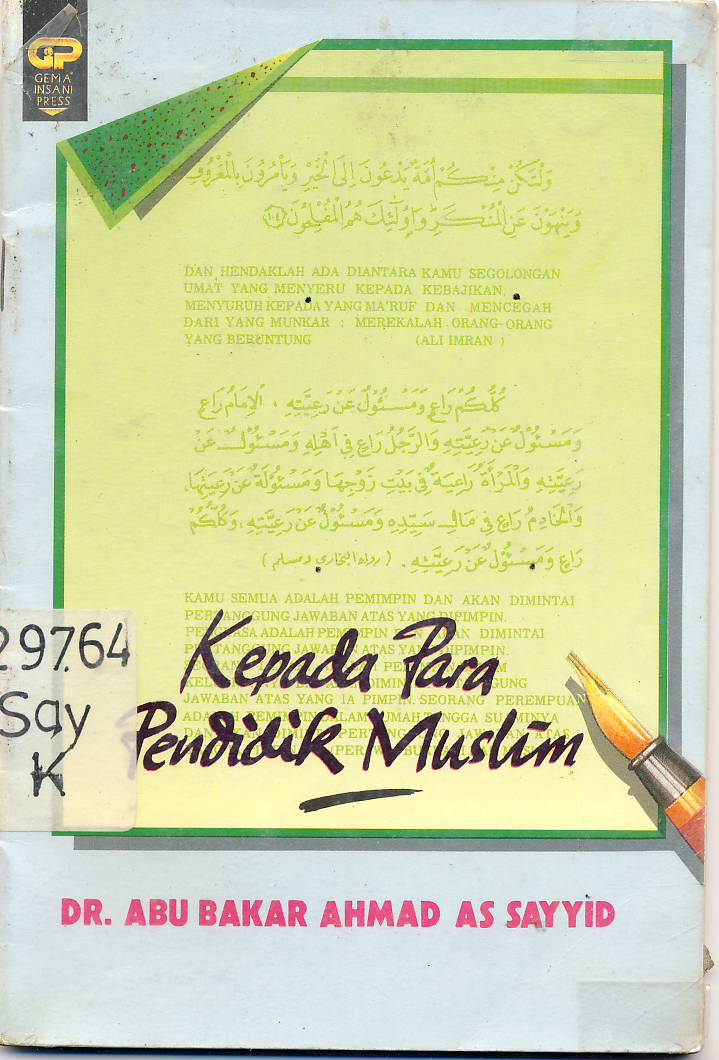 GP
GEMA
INSANI
PRESS
وَلْتَكُنْ مِنْكُمْ أُمَّةٌ يَدْعُونَ إِلَى الْخَيْرِ وَيَأْمُرُونَ بِالْمَعْرُوفِ
وَيَنْهَوْنَ عَنِ الْمُنْكَرِ وَأُولَٰئِكَ هُمُ الْمُفْلِحُونَ ١٠٤
DAN HENDAKLAH ADA DIANTARA KAMU SEGOLONGAN
UMAT YANG MENYERU KEPADA KEBAJIKAN,
MENYURUH KEPADA YANG MA'RUF DAN MENCEGAH
DARI YANG MUNKAR : MEREKALAH ORANG-ORANG
YANG BERUNTUNG (ALI IMRAN )
كُلُّكُمْ رَاعٍ وَمَسْئُولٌ عَنْ رَعِيَّتِهِ ، الْإِمَامُ رَاعٍ
وَمَسْئُولٌ عَنْ رَعِيَّتِهِ وَالرَّجُلُ رَاعٍ فِي أَهْلِهِ وَمَسْئُولٌ عَنْ
رَعِيَّتِهِ وَالْمَرْأَةُ رَاعِيَةٌ فِي بَيْتِ زَوْجِهَا وَمَسْئُولَةٌ عَنْ رَعِيَّتِهَا،
وَالْخَادِمُ رَاعٍ فِي مَالِ سَيِّدِهِ وَمَسْئُولٌ عَنْ رَعِيَّتِهِ، وَكُلُّكُمْ
رَاعٍ وَمَسْئُولٌ عَنْ رَعِيَّتِهِ . (رواه البخاري ومسلم)
KAMU SEMUA ADALAH PEMIMPIN DAN AKAN DIMINTAI
PERTANGGUNG JAWABAN ATAS YANG DIPIMPIN.
ADALAH DIMINTAI
JAWABAN ATAS YANG IA PIMPIN. SEORANG PEREMPUAN
Kepada Para
Pendidik Muslim
297.64
Say
K
DR. ABU BAKAR AHMAD AS SAYYID